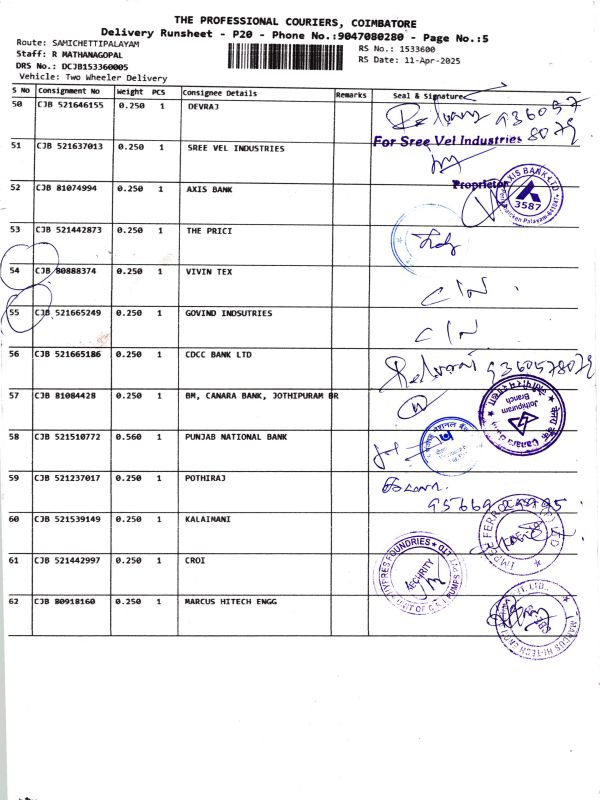 THE PROFESSIONAL COURIERS, COIMBATORE
Delivery Runsheet - P20 - Phone No.:9047080280 - Page No.:5
Route: SAMICHETTIPALAYAM
Staff: R MATHANAGOPAL
DRS No.: DCJB153360005
Vehicle: Two Wheeler Delivery
RS No.: 1533600
RS Date: 11-Apr-2025
S No Consignment No Weight PCS Consignee Details Remarks Seal & Signature
50 CJB 521646155 0.250 1 DEVRAJ
936057
8079
51 CJB 521637013 0.250 1 SREE VEL INDUSTRIES
For Sree Vel Industries
Proprietor
52 CJB 81074994 0.250 1 AXIS BANK
AXIS BANK LTD
3587
53 CJB 521442873 0.250 1 THE PRICI
54 CJB 80888374 0.250 1 VIVIN TEX
C/N
55 CJB 521665249 0.250 1 GOVIND INDSUTRIES
C/N
56 CJB 521665186 0.250 1 CDCC BANK LTD
9360578079
57 CJB 81084428 0.250 1 BM, CANARA BANK, JOTHIPURAM BR
Jothipuram
Branch
58 CJB 521510772 0.560 1 PUNJAB NATIONAL BANK
59 CJB 521237017 0.250 1 POTHIRAJ
60 CJB 521539149 0.250 1 KALAIMANI
61 CJB 521442997 0.250 1 CROI
SECURITY
62 CJB 80918160 0.250 1 MARCUS HITECH ENGG